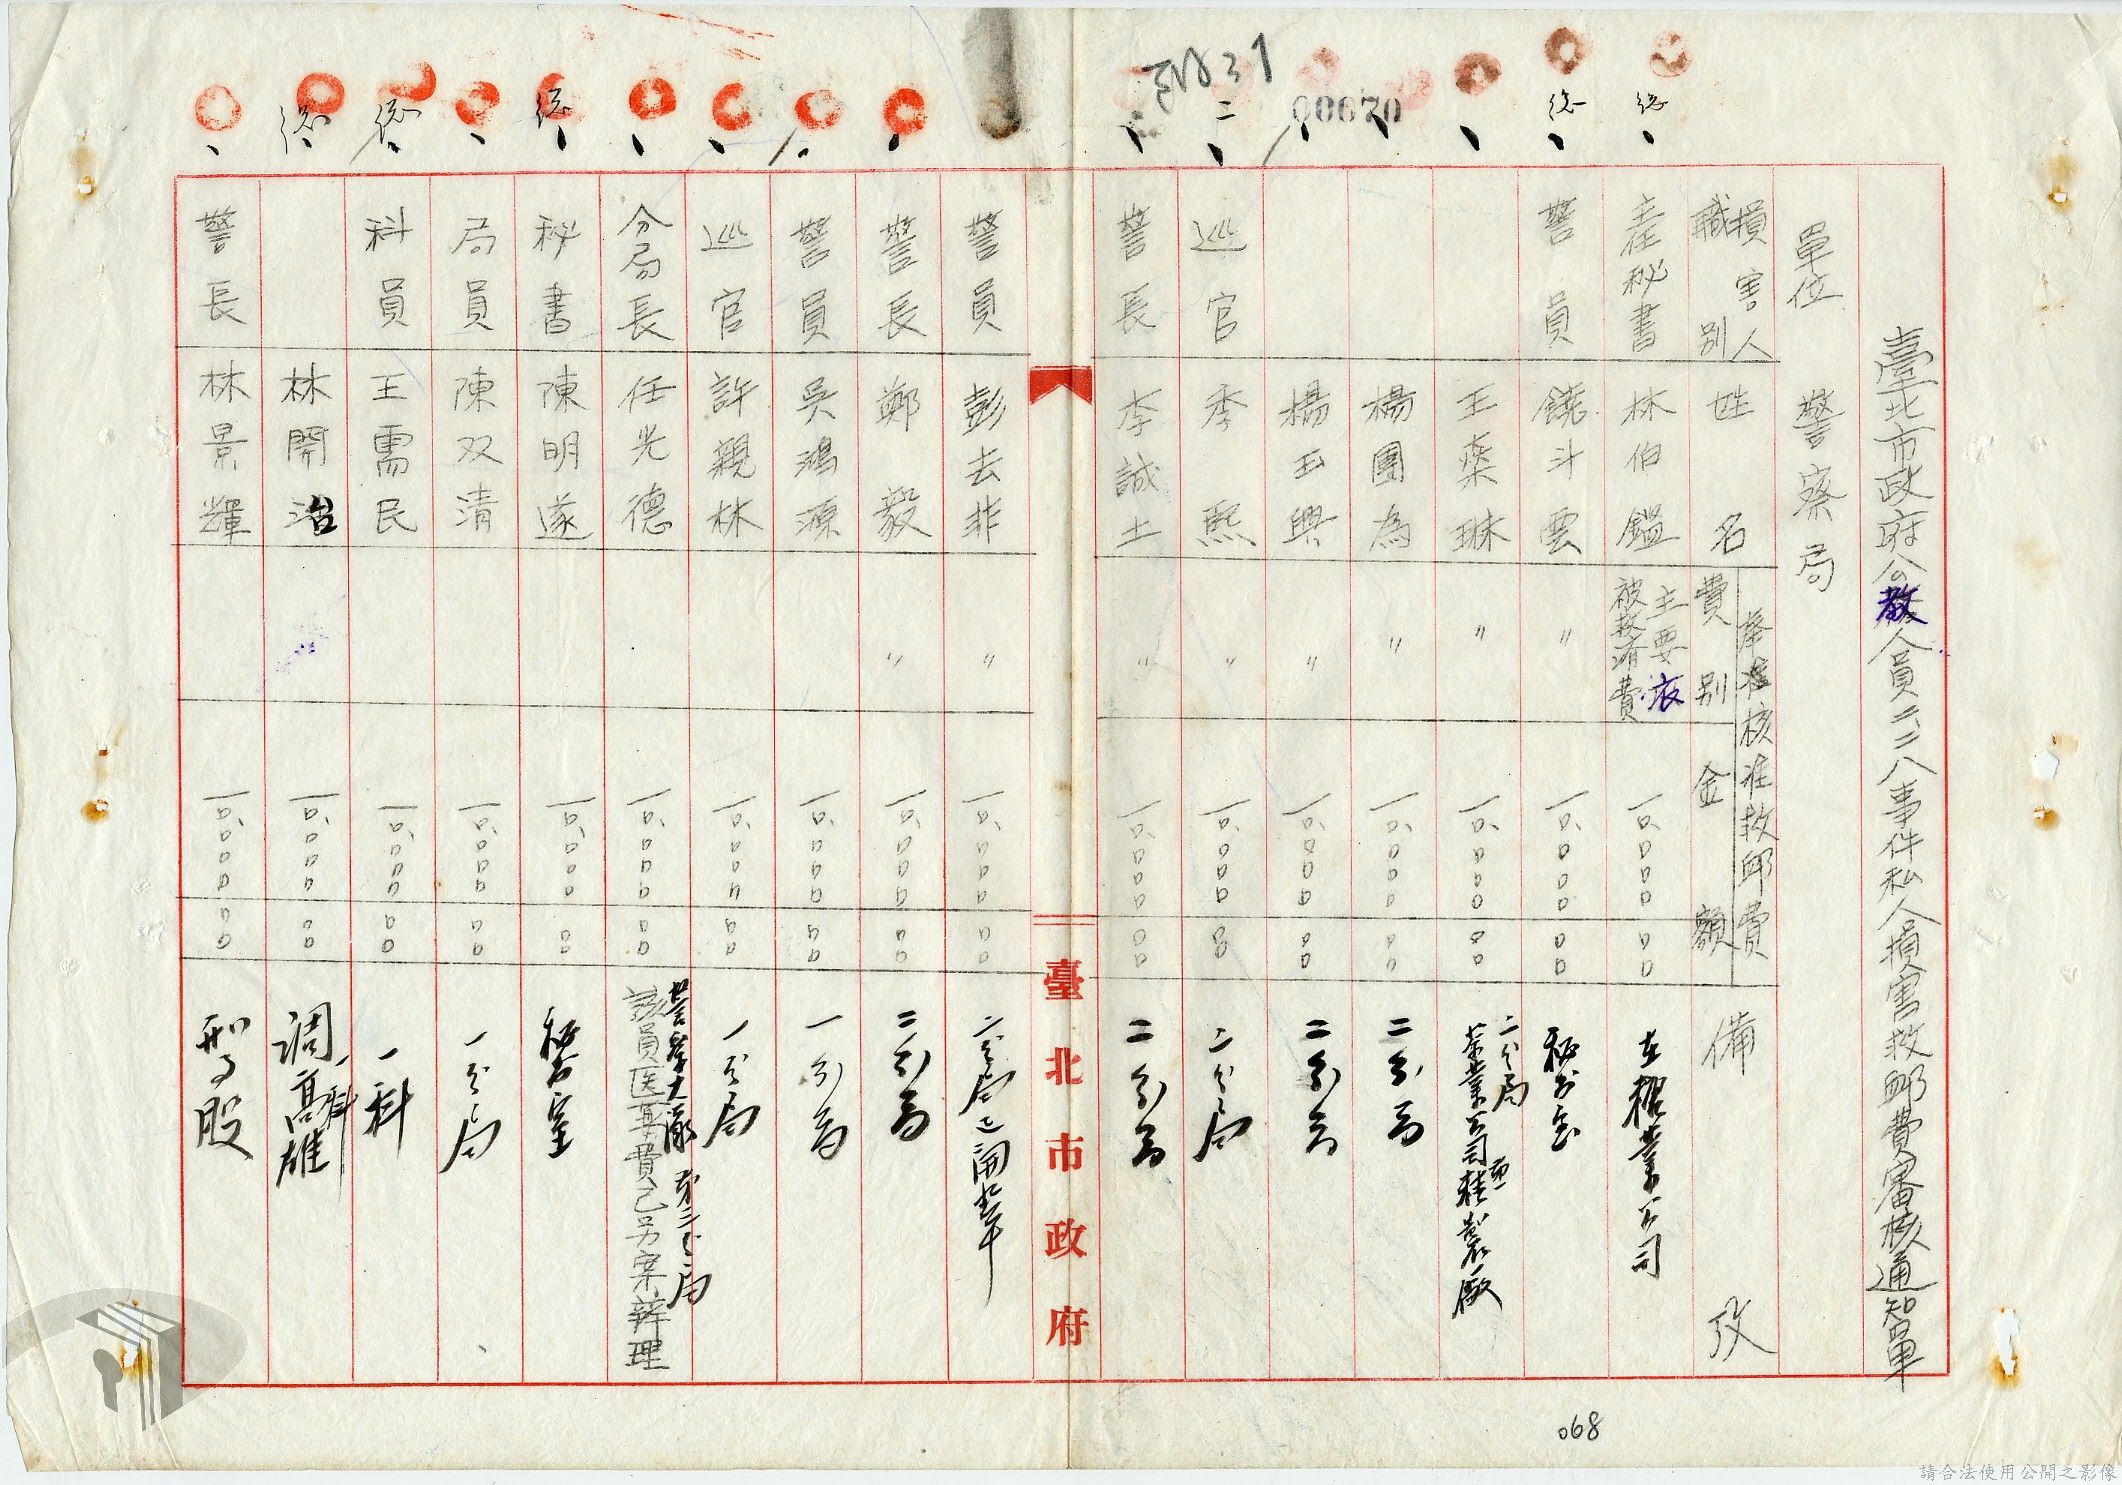 臺北市政府公教人員二二八事件私人損害救卹費審核通知單
單位 警察局
損害人職別 姓名 核准救卹費 費別 金額 備攷
主任秘書 林伯鑑 主要衣被救濟費 一〇、〇〇〇〇〇 在糖業公司
警員 饒斗雲 〃 一〇、〇〇〇〇〇 秘書室
王桒琳 〃 一〇、〇〇〇〇〇 二分局 茶業公司
楊團為 〃 一〇、〇〇〇〇〇 二分局
楊玉興 〃 一〇、〇〇〇〇〇 二分局
巡官 季熙 〃 一〇、〇〇〇〇〇 二分局
警長 李誠土 〃 一〇、〇〇〇〇〇 二分局
臺北市政府
警員 彭去非 〃 一〇、〇〇〇〇〇 二分局已開革
警長 鄭毅 〃 一〇、〇〇〇〇〇 二分局
警員 吳鴻源 一〇、〇〇〇〇〇 一分局
巡官 許親林 一〇、〇〇〇〇〇 一分局
分局長 任光德 一〇、〇〇〇〇〇 警察大隊 第二分局 該員医葯費已另案辦理
秘書 陳明遂 一〇、〇〇〇〇〇 秘書室
局員 陳双清 一〇、〇〇〇〇〇 一分局
科員 王需民 一〇、〇〇〇〇〇 一科
林開治 一〇、〇〇〇〇〇 一科 調高雄
警長 林景輝 一〇、〇〇〇〇〇 刑事股
00670
068
請合法使用公開之影像